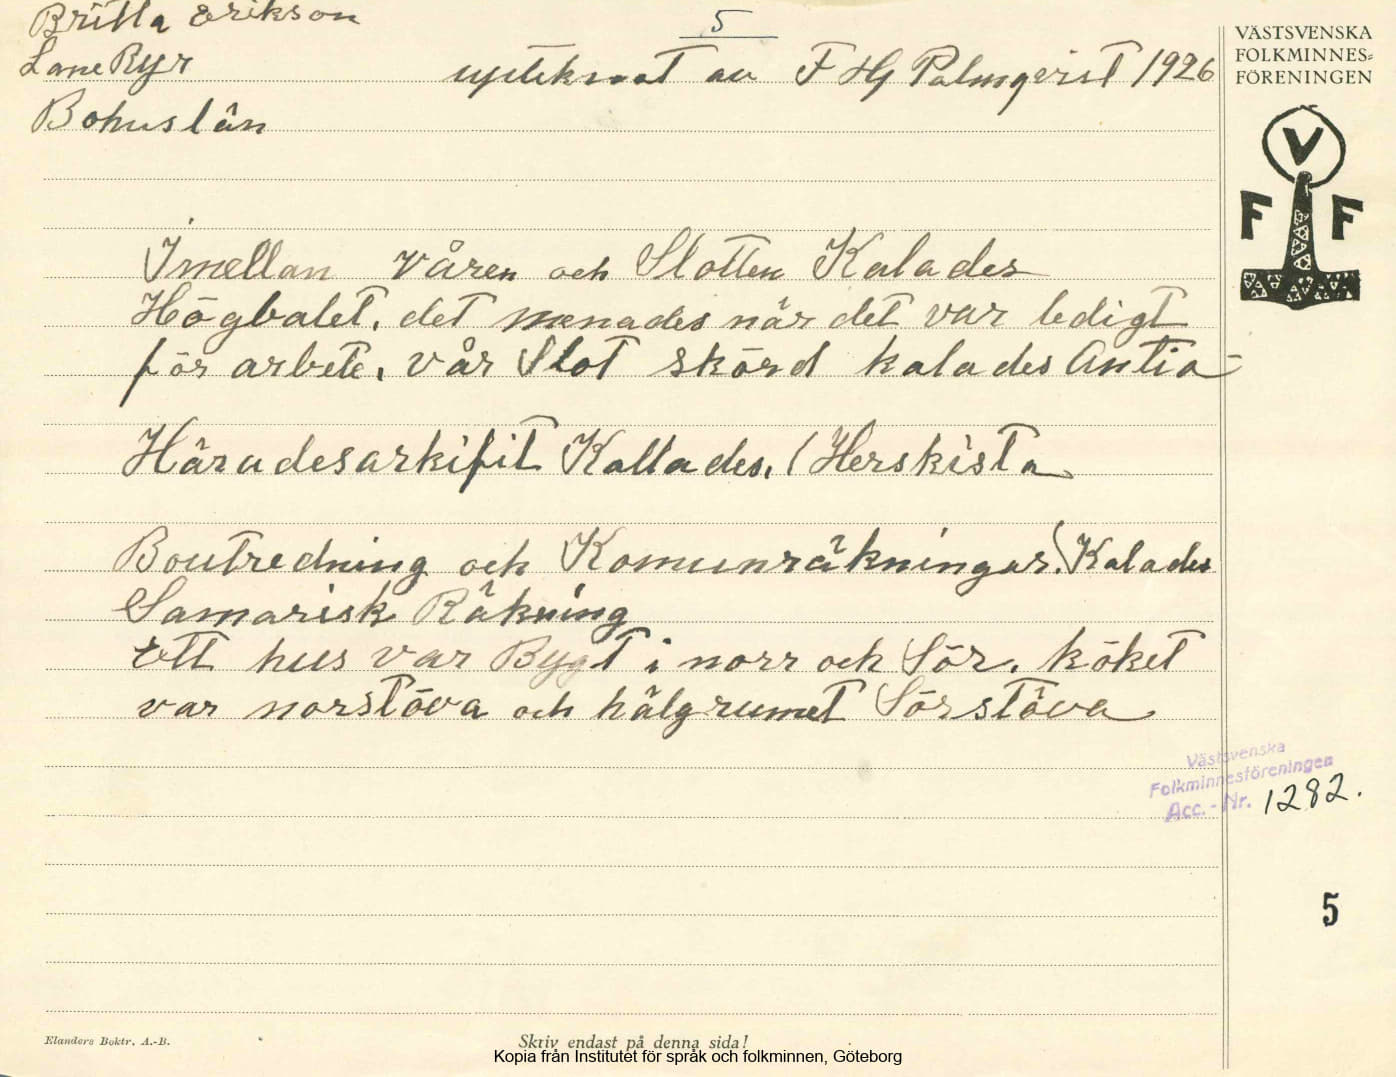 Britta Erikson
5
VÄSTSVENSKA
FOLKMINNES-
FÖRENINGEN
LaneRyr
upteknat av F HG Palmqvist 1926
Bohuslän
V
F F
Imellan våren och Slotten Kalades
Högbalet, det menades när det var ledigt
för arbete, vår Slot skörd kalades Antia-
Häradesarkifit Kallades, (Herskista
Boutredning och Komunräkningar.) Kalades
Samarisk Räkning
Ett hus var Bygt i norr och Sör. köket
var norstöva och hälgrumet Sörstöva
Västsvenska
Folkminnesföreningen
Acc.-Nr. 1282.
5
Elanders Boktr. A.-B.
Skriv endast på denna sida!
Kopia från Institutet för språk och folkminnen, Göteborg